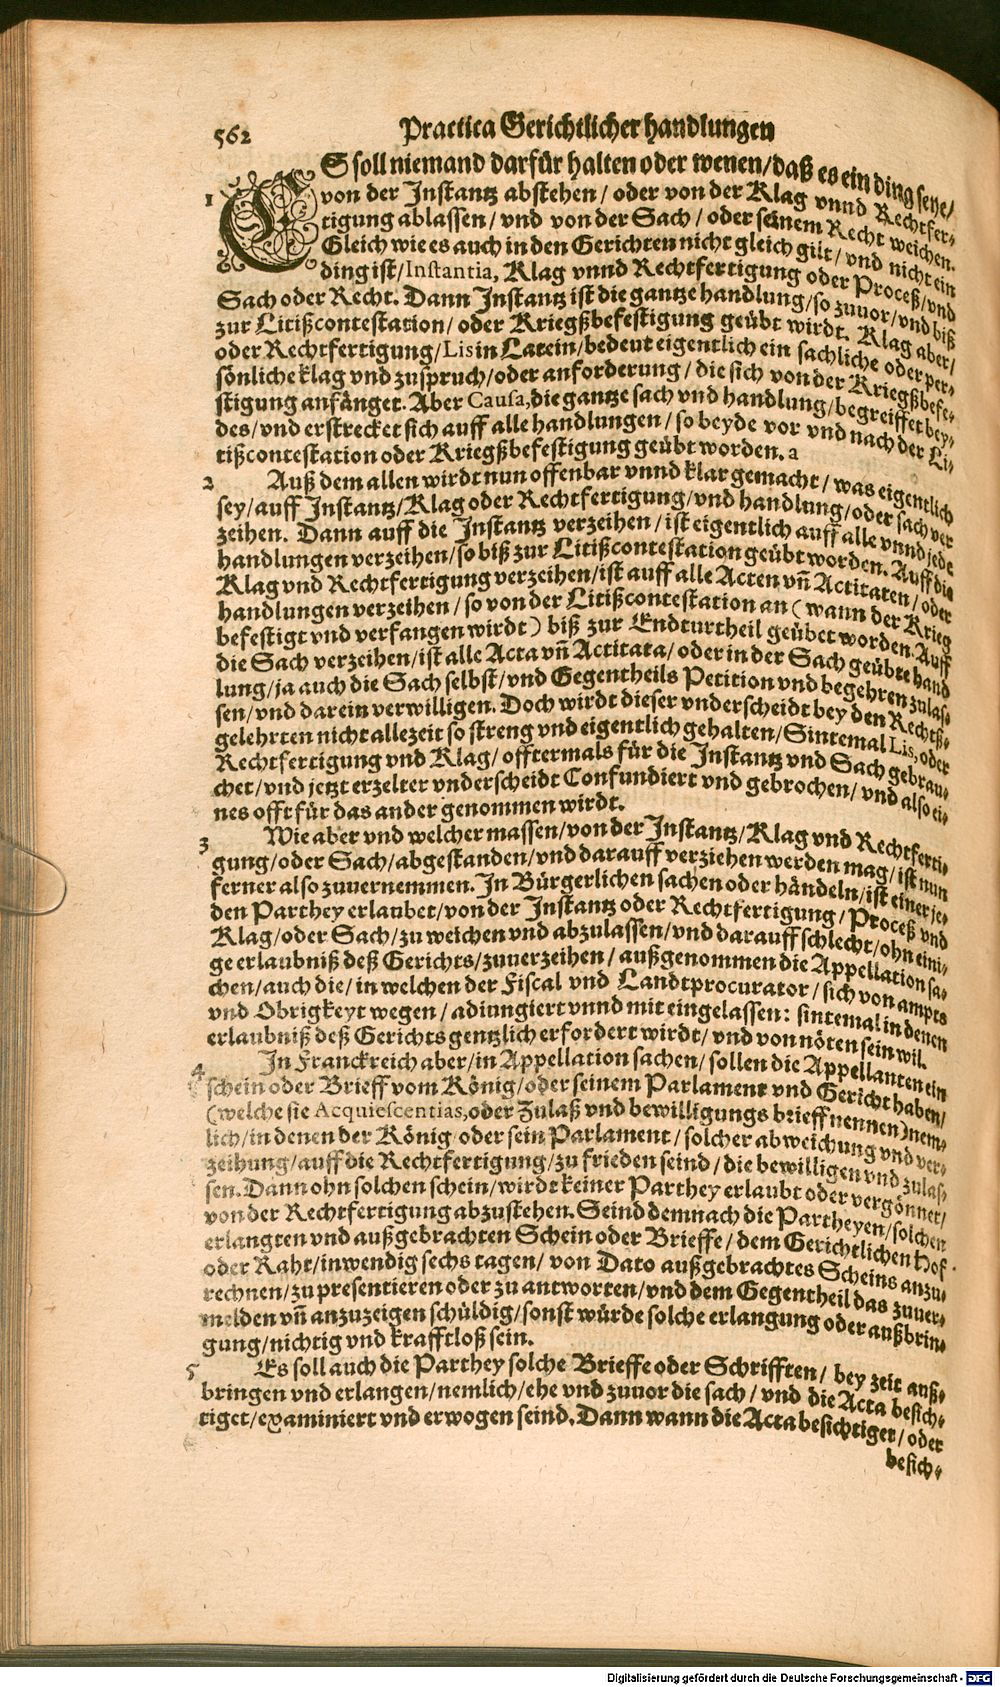 562 Practica Gerichtlicher handlungen
1 ES soll niemand darfür halten oder wenen/daß es ein ding seye/
von der Instantz abstehen/ oder von der Klag vnnd Rechtfer-
tigung ablassen/ vnd von der Sach/ oder seinem Recht weichen.
Gleich wie es auch in den Gerichten nicht gleich gilt/ vnd nicht ein
ding ist/Instantia, Klag vnnd Rechtfertigung oder Proceß/vnd
Sach oder Recht. Dann Instantz ist die gantze handlung/so zuuor/vnd biß
zur Litißcontestation/ oder Kriegßbefestigung geübt wirdt. Klag aber/
oder Rechtfertigung/Lis in Latein/bedeut eigentlich ein sachliche oder per-
sönliche klag vnd zuspruch/oder anforderung/ die sich von der Kriegßbefe-
stigung anfänget. Aber Causa,die gantze sach vnd handlung/begreiffet bey-
des/vnd erstrecket sich auff alle handlungen/ so beyde vor vnd nach der Li-
tißcontestation oder Kriegßbefestigung geübt worden. a
2 Auß dem allen wirdt nun offenbar vnnd klar gemacht/ was eigentlich
sey/auff Instantz/Klag oder Rechtfertigung/vnd handlung/oder sach ver
zeihen. Dann auff die Instantz verzeihen/ist eigentlich auff alle vnnd jede
handlungen verzeihen/so biß zur Litißcontestation geübt worden. Auff die
Klag vnd Rechtfertigung verzeihen/ist auff alle Acten vn̄ Actitaten/ oder
handlungen verzeihen/so von der Litißcontestation an (wann der Krieg
befestigt vnd verfangen wirdt) biß zur Endturtheil geübet worden. Auff
die Sach verzeihen/ist alle Acta vn̄ Actitata/ oder in der Sach geübte hand
lung/ja auch die Sach selbst/vnd Gegentheils Petition vnd begehren zulas-
sen/vnd darein verwilligen. Doch wirdt dieser vnderscheidt bey den Rechtß-
gelehrten nicht allezeit so streng vnd eigentlich gehalten/Sintemal Lis, oder
Rechtfertigung vnd Klag/ offtermals für die Instantz vnd Sach gebrau-
chet/vnd jetzt erzelter vnderscheidt Confundiert vnd gebrochen/ vnd also ei-
nes offt für das ander genommen wirdt.
3 Wie aber vnd welcher massen/von der Instantz/Klag vnd Rechtferti-
gung/oder Sach/abgestanden/vnd darauff verziehen werden mag/ist nun
ferner also zuuernemmen. In Bürgerlichen sachen oder händeln/ist einer je-
den Parthey erlaubet/von der Instantz oder Rechtfertigung/ Proceß vnd
Klag/oder Sach/zu weichen vnd abzulassen/vnd darauff schlecht/ohn eini-
ge erlaubniß deß Gerichts/zuuerzeihen/ außgenommen die Appellation sa-
chen/auch die/in welchen der Fiscal vnd Landtprocurator/sich von ampts
vnd Obrigkeyt wegen/ adiungiert vnnd mit eingelassen: sintemal in denen
erlaubniß deß Gerichts gentzlich erfordert wirdt/ vnd von nöten sein wil.
4 In Franckreich aber/in Appellation sachen/ sollen die Appellanten ein
schein oder Brieff vom König/oder seinem Parlament vnd Gericht haben/
(welche sie Acquiescentias,oder Zulaß vnd bewilligungs brieff nennen) nem-
lich/in denen der König oder sein Parlament/ solcher abweichung vnd ver-
zeihung/auff die Rechtfertigung/zu frieden seind/die bewilligen vnd zulas-
sen. Dann ohn solchen schein/wirdt keiner Parthey erlaubt oder vergönnet/
von der Rechtfertigung abzustehen. Seind demnach die Partheyen/solchen
erlangten vnd außgebrachten Schein oder Brieffe/ dem Gerichtlichen Hof
oder Raht/inwendig sechs tagen/ von Dato außgebrachtes Scheins anzu-
rechnen/zu presentieren oder zu antworten/vnd dem Gegentheil das zuuer-
melden vn̄ anzuzeigen schüldig/sonst würde solche erlangung oder außbrin-
gung/nichtig vnd krafftloß sein.
5 Es soll auch die Parthey solche Brieffe oder Schrifften/ bey zeit auß-
bringen vnd erlangen/nemlich/ehe vnd zuuor die sach/ vnd die Acta besich-
tiget/examiniert vnd erwogen seind. Dann wann die Acta besichtiget/ oder
besich-
Digitalisierung gefördert durch die Deutsche Forschungsgemeinschaft - DFG